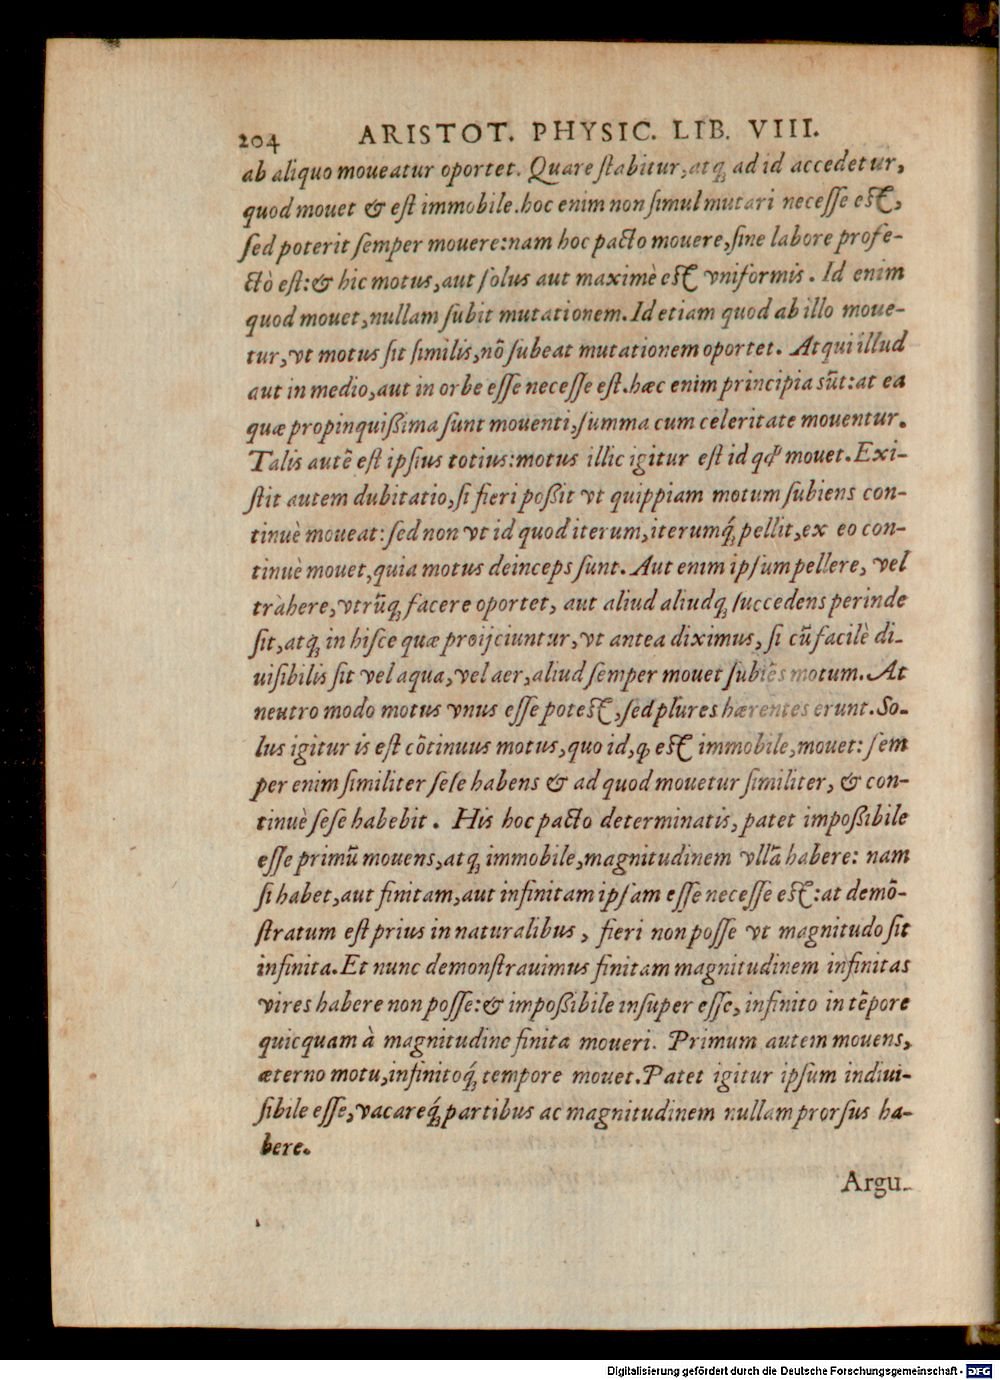 204 ARISTOT. PHYSIC. LIB. VIII.
ab aliquo moueatur oportet. Quare stabitur, atq; ad id accedetur,
quod mouet & est immobile. hoc enim non simul mutari necesse est,
sed poterit semper mouere: nam hoc pacto mouere, sine labore profe-
ctò est: & hic motus, aut solus aut maximè est vniformis. Id enim
quod mouet, nullam subit mutationem. Id etiam quod ab illo moue-
tur, vt motus sit similis, nõ subeat mutationem oportet. Atqui illud
aut in medio, aut in orbe esse necesse est. hæc enim principia sũt: at ea
quæ propinquißima sunt mouenti, summa cum celeritate mouentur.
Talis autẽ est ipsius totius: motus illic igitur est id qđ mouet. Exi-
stit autem dubitatio, si fieri poßit vt quippiam motum subiens con-
tinuè moueat: sed non vt id quod iterum, iterumq́; pellit, ex eo con-
tinuè mouet, quia motus deinceps sunt. Aut enim ipsum pellere, vel
tràhere, vtrũq; facere oportet, aut aliud aliudq; succedens perinde
sit, atq; in hisce quæ proijciuntur, vt antea diximus, si cũ facilè di-
uisibilis sit vel aqua, vel aer, aliud semper mouet subiẽs motum. At
neutro modo motus vnus esse potest, sed plures hærentes erunt. So-
lus igitur is est cõtinuus motus, quo id, q̃ est immobile, mouet: sem
per enim similiter sese habens & ad quod mouetur similiter, & con-
tinuè sese habebit. His hoc pacto determinatis, patet impoßibile
esse primũ mouens, atq; immobile, magnitudinem vllã habere: nam
si habet, aut finitam, aut infinitam ipsam esse necesse est: at demõ-
stratum est prius in naturalibus, fieri non posse vt magnitudo sit
infinita. Et nunc demonstrauimus finitam magnitudinem infinitas
vires habere non posse: & impoßibile insuper esse, infinito in tẽpore
quicquam à magnitudine finita moueri. Primum autem mouens,
æterno motu, infinitoq́; tempore mouet. Patet igitur ipsum indiui-
sibile esse, vacareq́; partibus ac magnitudinem nullam prorsus ha-
bere.
Argu-
Digitalisierung gefördert durch die Deutsche Forschungsgemeinschaft - DFG